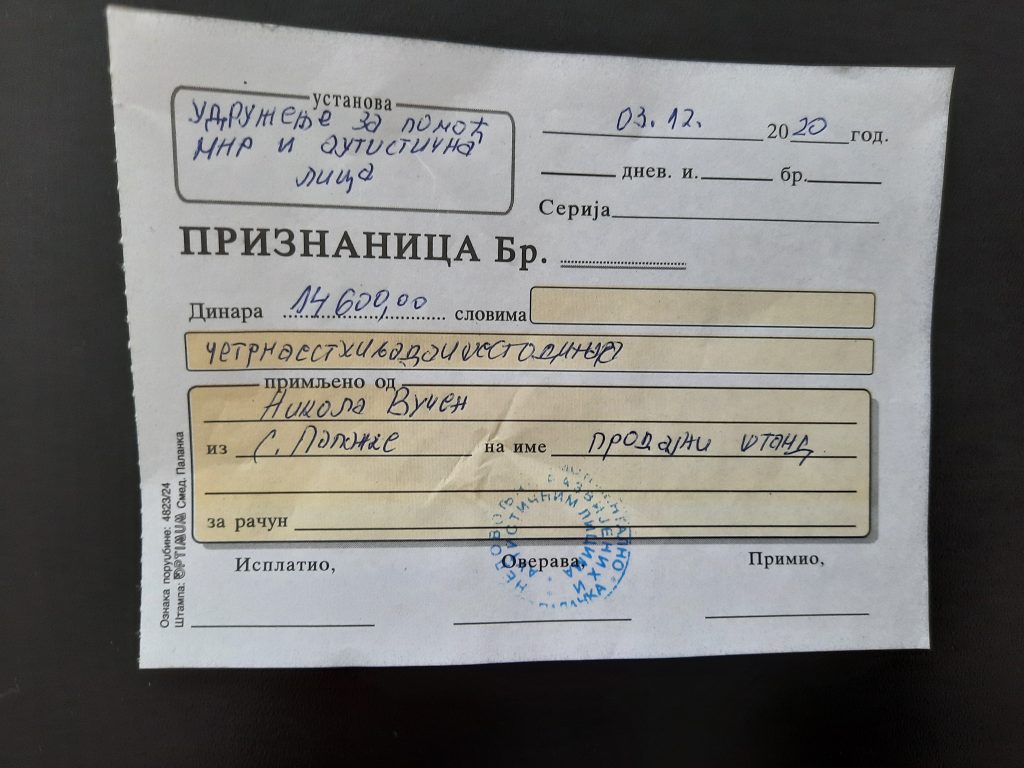 установа
УДРУЖЕЊЕ ЗА ПОМОЋ
МНР И АУТИСТИЧНА
ЛИЦА
03.12. 2020 год.
днев. и. бр.
Серија
ПРИЗНАНИЦА Бр.
Динара 14 600,00 словима
четрнаестхиљадаишестодинара
примљено од
Никола Вучен
из С. Паланке на име продајни штанд
за рачун
Исплатио, Оверава, Примио,
НЕДОВОЉНО РАЗВИЈЕНИХ И
АУТИСТИЧНИМ ЛИЦИМА
ПАЛАНКА
Ознака поруџбине: 4823/24
Штампа: OPTIMUM Смед. Паланка